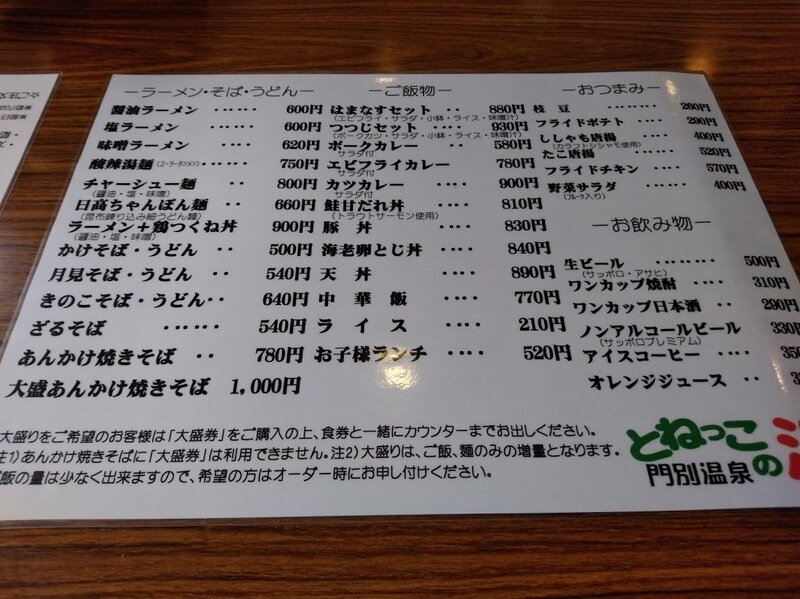 ーラーメン・そば・うどんー
醤油ラーメン ‥‥‥ 600円
塩ラーメン ‥‥‥ 600円
味噌ラーメン ‥‥ 620円
酸辣湯麺(スーラータンメン)‥‥ 750円
チャーシュー麺 ‥ 800円
(醤油・塩・味噌)
日高ちゃんぽん麺 ‥ 660円
(昆布練り込み細うどん麺)
ラーメン+鶏つくね丼 900円
(醤油・塩・味噌)
かけそば・うどん ‥ 500円
月見そば・うどん ‥ 540円
きのこそば・うどん‥ 640円
ざるそば ‥‥‥ 540円
あんかけ焼きそば ‥ 780円
大盛あんかけ焼きそば 1,000円
ーご飯物ー
はまなすセット ‥ 880円
(エビフライ・サラダ・小鉢・ライス・味噌汁)
つつじセット ‥‥ 930円
(ポークカツ・サラダ・小鉢・ライス・味噌汁)
ポークカレー ‥‥ 580円
サラダ付
エビフライカレー 780円
サラダ付
カツカレー ‥‥ 900円
サラダ付
鮭甘だれ丼 ‥‥ 810円
(トラウトサーモン使用)
豚 丼 ‥‥ 830円
海老卵とじ丼 ‥‥ 840円
天 丼 ‥‥ 890円
中 華 飯 ‥‥ 770円
ラ イ ス ‥‥ 210円
お子様ランチ ‥‥ 520円
ーおつまみー
枝 豆 ‥‥‥‥ 260円
フライドポテト ‥‥ 290円
ししゃも唐揚 ‥‥ 400円
(カラフトシシャモ使用)
たこ唐揚 ‥‥‥ 520円
フライドチキン ‥‥ 570円
野菜サラダ ‥‥‥ 400円
(フルーツ入り)
ーお飲み物ー
生ビール ‥‥‥‥ 500円
(サッポロ・アサヒ)
ワンカップ焼酎 ‥‥ 310円
ワンカップ日本酒 ‥ 290円
ノンアルコールビール 330
(サッポロプレミアム)
アイスコーヒー ‥‥ 35
オレンジジュース ‥
大盛りをご希望のお客様は「大盛券」をご購入の上、食券と一緒にカウンターまでお出しください。
注1)あんかけ焼きそばに「大盛券」は利用できません。注2)大盛りは、ご飯、麺のみの増量となります。
飯の量は少なく出来ますので、希望の方はオーダー時にお申し付けください。
とねっこ
門別温泉の